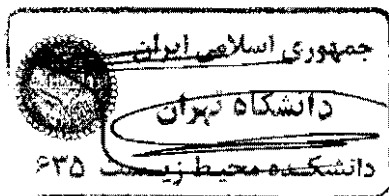 جمهوری اسلامی ایران
دانشگاه تهران
دانشکده محیط زیست ۶۳۵